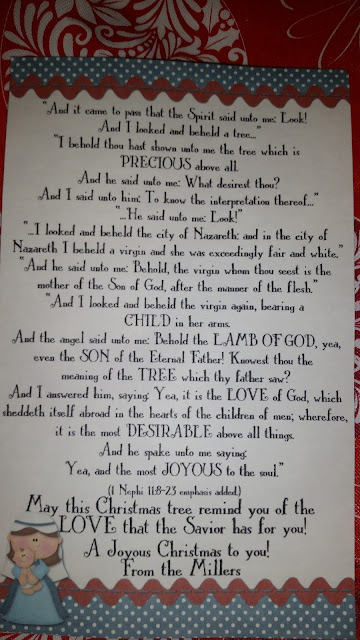 "And it came to pass that the Spirit said unto me: Look!
And I looked and beheld a tree..."
"I behold thou hast shown unto me the tree which is
PRECIOUS above all.
And he said unto me: What desirest thou?
And I said unto him: To know the interpretation thereof..."
"...He said unto me: Look!"
"...I looked and beheld the city of Nazareth; and in the city of
Nazareth I beheld a virgin and she was exceedingly fair and white."
"And he said unto me: Behold, the virgin whom thou seest is the
mother of the Son of God, after the manner of the flesh."
"And I looked and beheld the virgin again, bearing a
CHILD in her arms.
And the angel said unto me: Behold the LAMB OF GOD, yea,
even the SON of the Eternal Father! Knowest thou the
meaning of the TREE which thy father saw?
And I answered him, saying: Yea, it is the LOVE of God, which
sheddeth itself abroad in the hearts of the children of men; wherefore,
it is the most DESIRABLE above all things.
And he spake unto me saying:
Yea, and the most JOYOUS to the soul."
(1 Nephi 11:8-23 emphasis added.)
May this Christmas tree remind you of the
LOVE that the Savior has for you!
A Joyous Christmas to you!
From the Millers